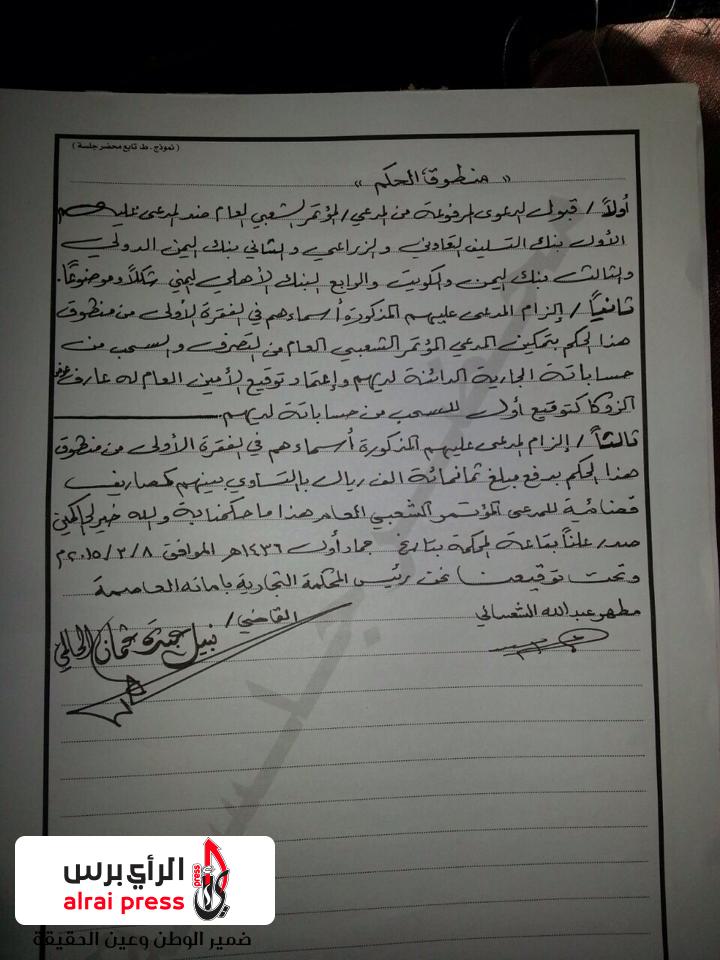 ( نموذج . ط. تابع محضر جلسة )
« منطوق الحكم »
أولاً / قبول الدعوى المرفوعة من المدعي / المؤتمر الشعبي العام ضد المدعى عليهم
الأول بنك التسليف التعاوني والزراعي والثاني بنك اليمن الدولي
والثالث بنك اليمن والكويت والرابع البنك الأهلي اليمني شكلاً وموضوعاً.
ثانياً / إلزام المدعى عليهم المذكورة أسماءهم في الفقرة الأولى من منطوق
هذا الحكم بتمكين المدعي المؤتمر الشعبي العام من التصرف والسحب من
حساباتة الجارية الدائنة لديهم وإعتماد توقيع الأمين العام له عارف عوض
الزوكا كتوقيع أول للسحب من حساباتة لديهم.
ثالثاً / إلزام المدعى عليهم المذكورة أسماءهم في الفقرة الأولى من منطوق
هذا الحكم بدفع مبلغ ثمانمائة الف ريال بالتساوي بينهم كمصاريف
قضائية للمدعي المؤتمر الشعبي العام هذا ما حكمنا بة والله خير الحاكمين
صدر علناً بقاعة المحكمة بتاريخ جماد أول ١٤٣٦هـ الموافق ٢٠١٥/٣/٨م
وتحت توقيعنا نحن رئيس المحكمة التجارية بامانه العاصمة
مطهر عبدالله
القاضي /
نبيل عثمان
محضر جلسة
الرأي برس
alrai press
press
ضمير الوطن وعين الحقيقة